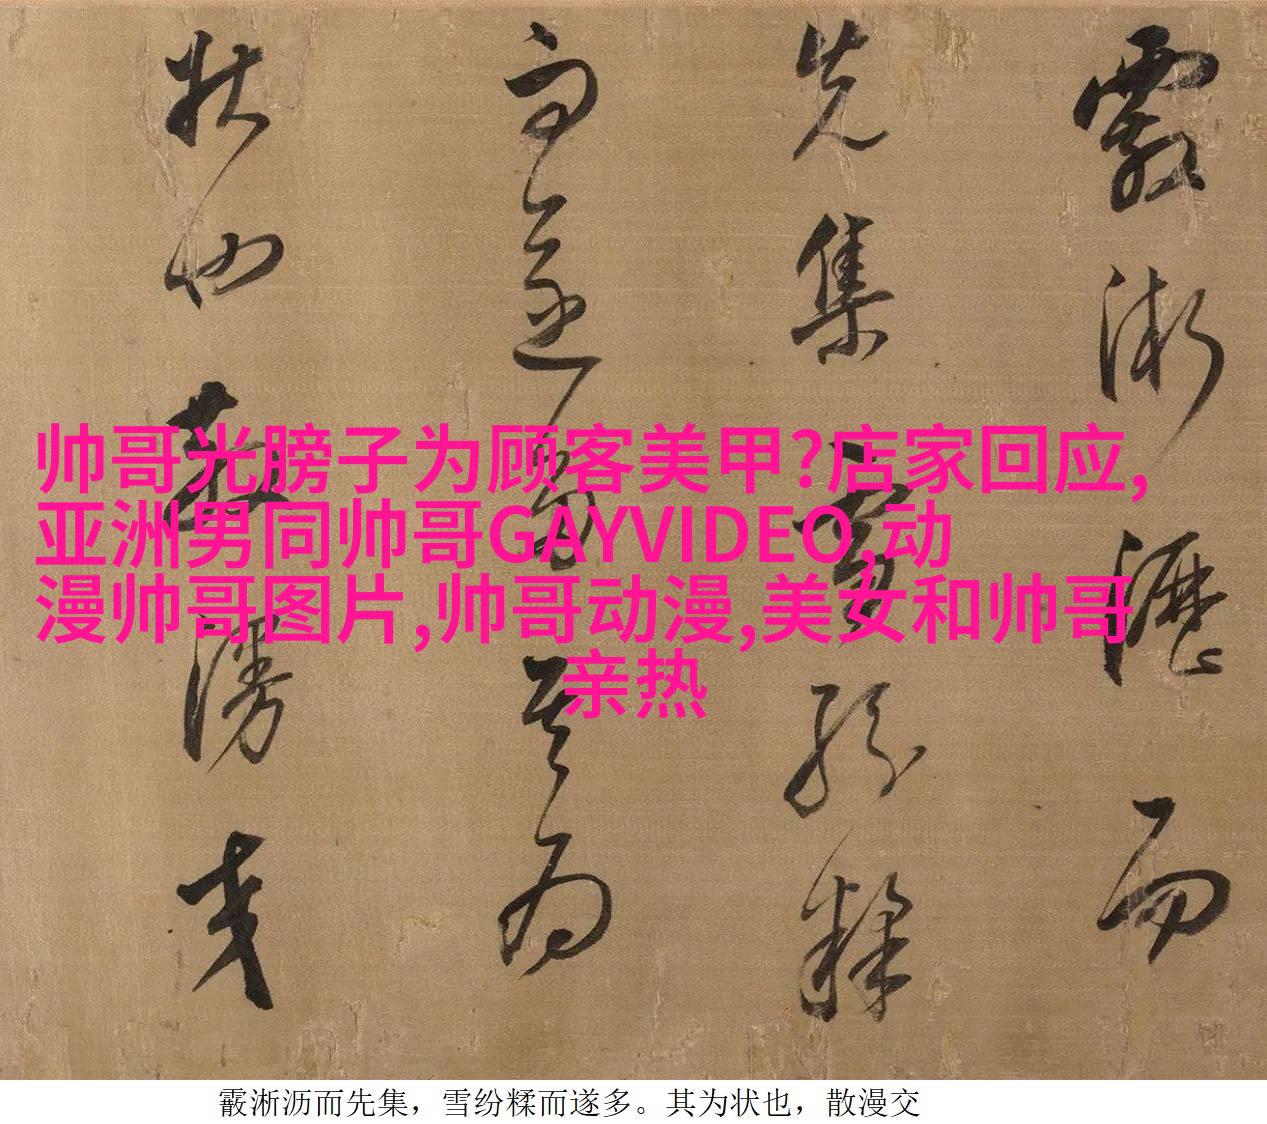 霰淅沥而
先集雪纷糅
而遂多其为
状也散漫交
帅哥光膀子为顾客美甲?店家回应,
亚洲男同帅哥GAYVIDEO,动
漫帅哥图片,帅哥动漫,美女和帅哥
亲热
霰淅沥而先集，雪纷糅而遂多。其为状也，散漫交